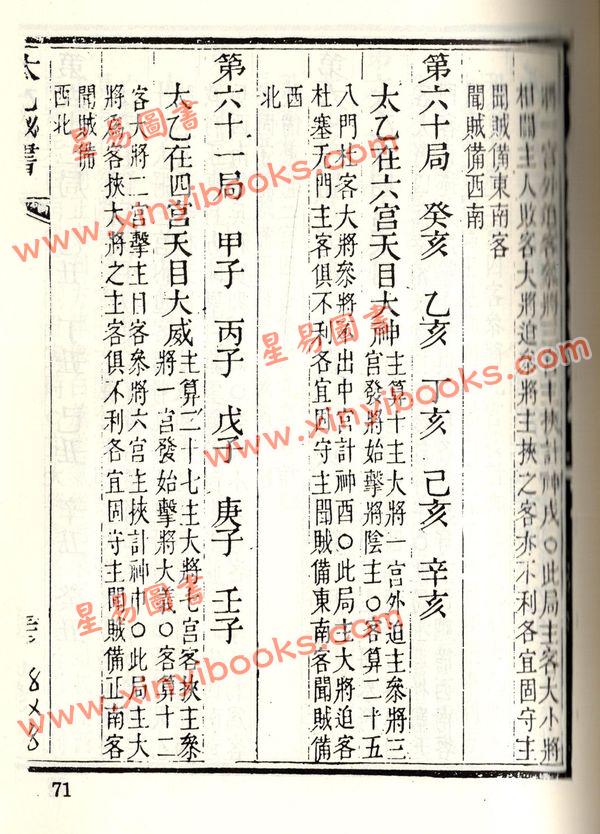 宮外迫客參將三 主挾計神戌○此局主客大小將
相關主人敗客大將迫參將主挾之客亦不利各宜固守主
聞賊備東南客
聞賊備西南
第六十局 癸亥 乙亥 丁亥 己亥 辛亥
太乙在六宮天目大神主算十主大將一宮外迫主參將三
宮發將始擊將陰主○客算二十五
八門杜客大將參將不出中宮計神酉○此局主大將迫客
杜塞无門主客俱不利各宜固守主聞賊備東南客聞賊備
西
北
第六十一局 甲子 丙子 戊子 庚子 壬子
太乙在四宮天目大威主算二十七主大將七宮客挾主參
將一宮發始擊將大義○客算十二
客大將二宮擊主目客參將六宮主挾計神申○此局主大
將為客挾大將之主客俱不利各宜固守主聞賊備正南客
聞賊備
西北
太乙秘書
71
星易圖書
www.xinyibooks.com
星易圖書
www.xinyibooks.com
星易圖書
www.xinyibooks.com
星易圖書
www.xinyibooks.com